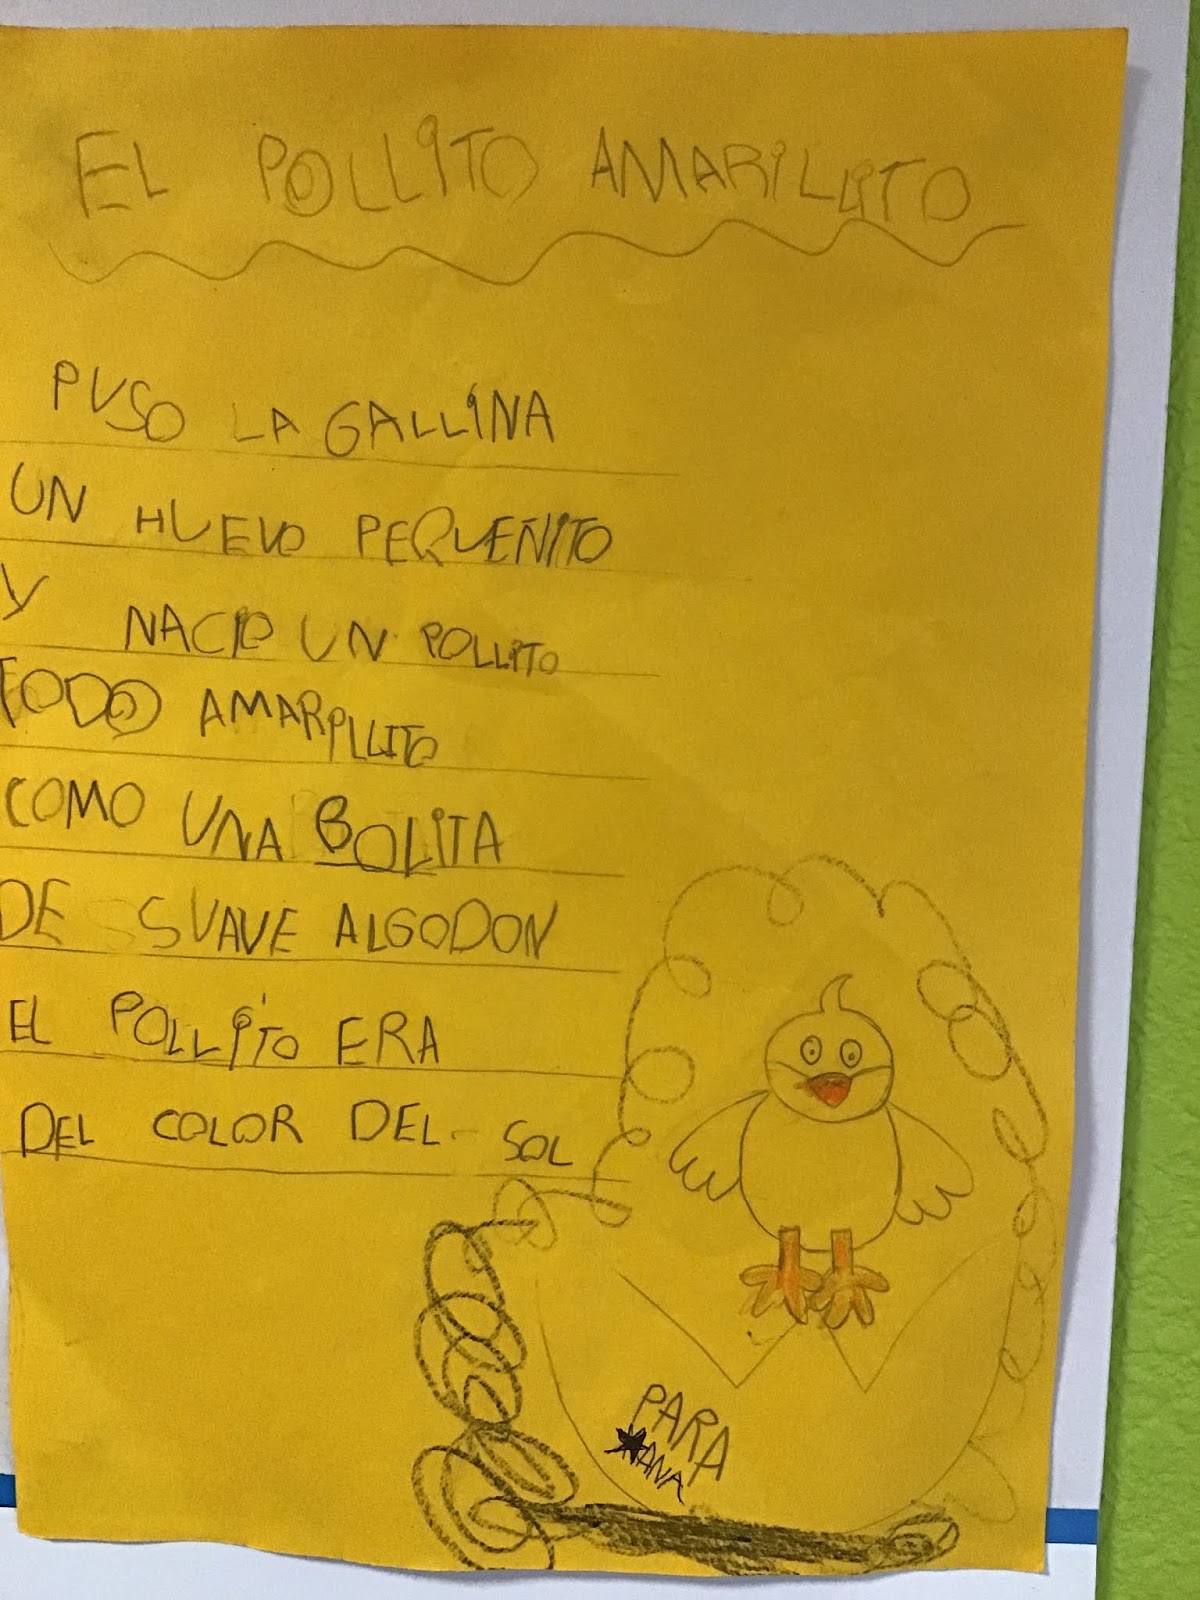 EL POLLITO AMARILLITO
PUSO LA GALLINA
UN HUEVO PEQUEÑITO
Y NACIO UN POLLITO
TODO AMARILLITO
COMO UNA BOLITA
DE SUAVE ALGODON
EL POLLITO ERA
DEL COLOR DEL SOL
PARA